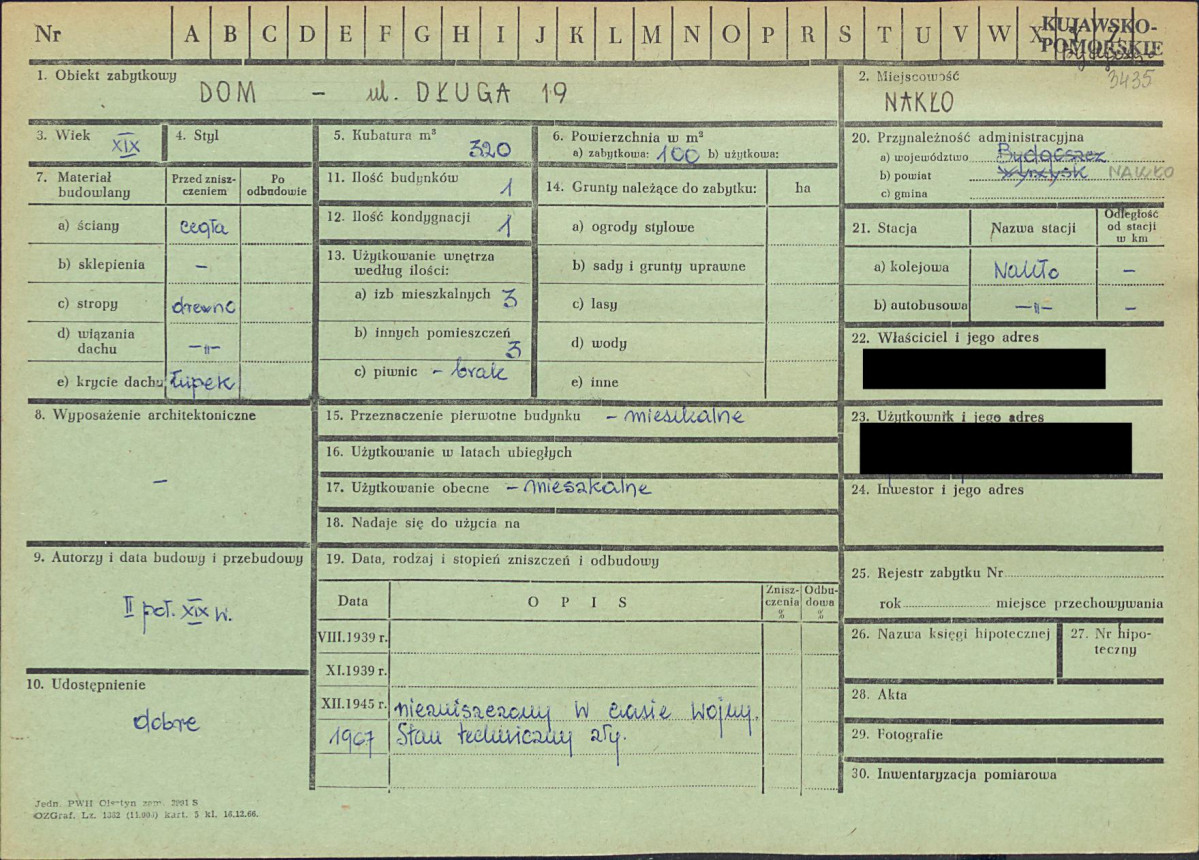 Nr A B C D E F G H I J K L M N O P R S T U V W X Y Z
KUJAWSKO-
POMORSKIE
3435
1. Obiekt zabytkowy
DOM - ul. DŁUGA 19
2. Miejscowość
NAKŁO
3. Wiek XIX
4. Styl
5. Kubatura m³ 320
6. Powierzchnia w m²
a) zabytkowa: 100 b) użytkowa:
7. Materiał budowlany
Przed zniszczeniem
Po odbudowie
a) ściany cegła
b) sklepienia –
c) stropy drewno
d) wiązania dachu –"–
e) krycie dachu łupek
8. Wyposażenie architektoniczne
–
9. Autorzy i data budowy i przebudowy
II poł. XIX w.
10. Udostępnienie
dobre
11. Ilość budynków 1
12. Ilość kondygnacji 1
13. Użytkowanie wnętrza
według ilości:
a) izb mieszkalnych 3
b) innych pomieszczeń 3
c) piwnic - brak
14. Grunty należące do zabytku: ha
a) ogrody stylowe
b) sady i grunty uprawne
c) lasy
d) wody
e) inne
15. Przeznaczenie pierwotne budynku - mieszkalne
16. Użytkowanie w latach ubiegłych
17. Użytkowanie obecne - mieszkalne
18. Nadaje się do użycia na
19. Data, rodzaj i stopień zniszczeń i odbudowy
Data OPIS Zniszczenia % Odbudowa %
VIII.1939 r.
XI.1939 r.
XII.1945 r. niezniszczony w czasie wojny.
1967 Stan techniczny zły.
20. Przynależność administracyjna
a) województwo Bydgoszcz
b) powiat Wyrzysk NAKŁO
c) gmina
21. Stacja Nazwa stacji Odległość od stacji w km
a) kolejowa Nakło –
b) autobusowa –"– –
22. Właściciel i jego adres
23. Użytkownik i jego adres
24. Inwestor i jego adres
25. Rejestr zabytku Nr
rok miejsce przechowywania
26. Nazwa księgi hipotecznej
27. Nr hipo-
teczny
28. Akta
29. Fotografie
30. Inwentaryzacja pomiarowa
Jedn. PWH Olsztyn zam. 2901 S
OZGraf. Lz. 1382 (11.000) kart. 5 kl. 16.12.66.